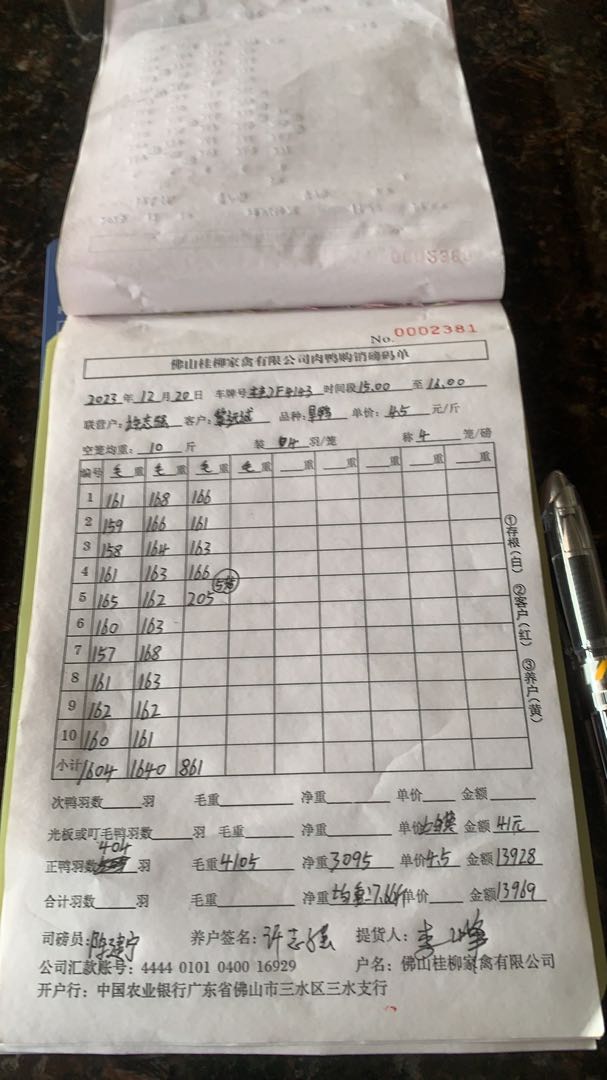 No. 0002381
佛山桂柳家禽有限公司肉鸭购销磅码单
2023年12月20日 车牌号 时间段15.00至16.00
联营户: 客户: 品种: 单价:4.5元/斤
空笼均重:10斤 装 羽/笼 称4笼/磅
编号 毛重 毛重 毛重 毛重 重 重 重 重
1 161 168 166
2 159 166 161
3 158 164 163
4 161 163 166
5 165 162 205
6 160 163
7 157 168
8 161 163
9 162 162
10 160 161
小计 1604 1640 861
①存根(白) ②客户(红) ③养户(黄)
次鸭羽数 羽 毛重 净重 单价 金额
光板或叮毛鸭羽数 羽 毛重 净重 单价 金额41元
404
正鸭羽数 羽 毛重4105 净重3095 单价4.5 金额13928
合计羽数 羽 毛重 净重均重:7.66斤 单价 金额13969
司磅员: 养户签名:许志强 提货人:
公司汇款账号: 4444 0101 0400 16929 户名: 佛山桂柳家禽有限公司
开户行: 中国农业银行广东省佛山市三水区三水支行